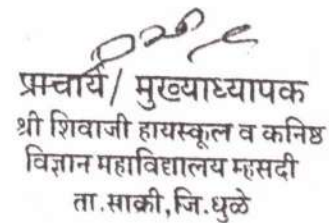 प्राचार्य/ मुख्याध्यापक
श्री शिवाजी हायस्कूल व कनिष्ठ
विज्ञान महाविद्यालय म्हसदी
ता.साक्री,जि.धुळे